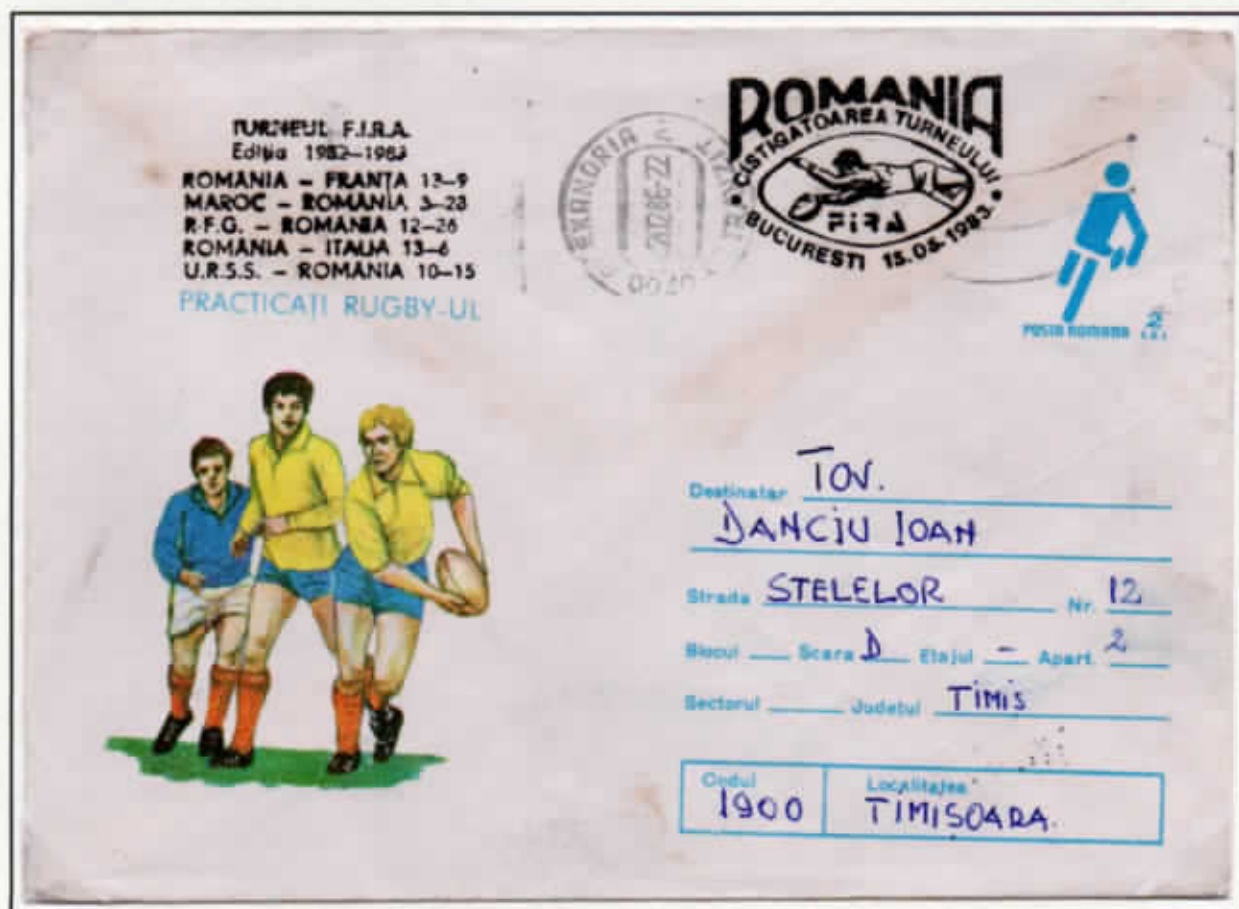 TURNEUL F.I.R.A.
Ediția 1982–1983
ROMANIA – FRANȚA 13–9
MAROC – ROMANIA 3–23
R.F.G. – ROMANIA 12–26
ROMANIA – ITALIA 13–6
U.R.S.S. – ROMANIA 10–15
PRACTICAȚI RUGBY-UL
ROMANIA
CISTIGATOAREA TURNEULUI
FIRA
BUCURESTI 15.05.1983.
POSTA ROMANA 2 LEI
Destinatar TOV.
DANCIU IOAN
Strada STELELOR Nr. 12
Blocul Scara D Etajul – Apart. 2
Sectorul Județul TIMIS
Codul Localitatea
1900 TIMISOARA